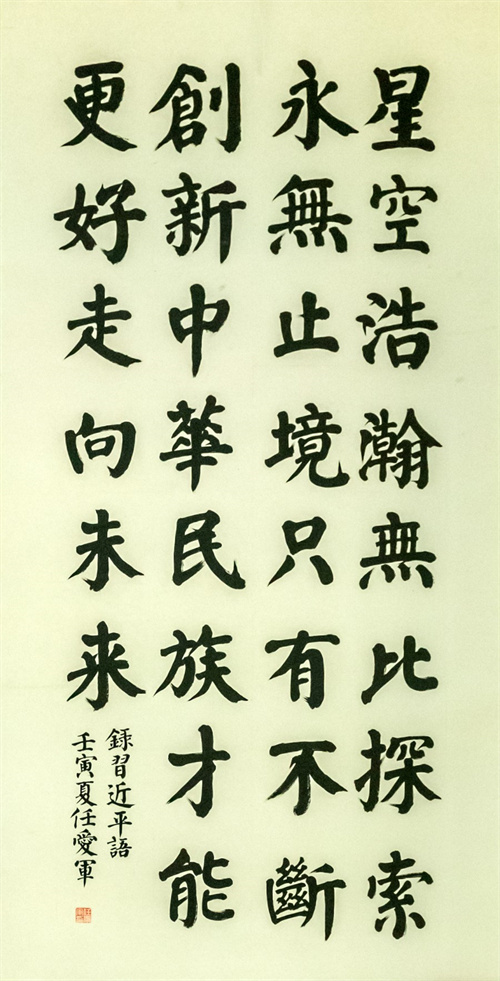 星空浩瀚無比探索
永無止境只有不斷
創新中華民族才能
更好走向未来
錄習近平語
壬寅夏任愛軍